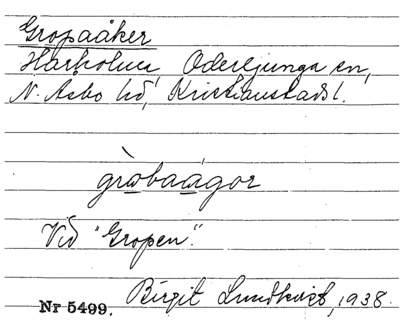 Gropaåker
Harholma, Oderljunga sn,
N. Åsbo hd, Kristianstads l.
grò̱baå̱gor
Vid "Gropen".
Birgit Lundkvist, 1938.
Nr 5499.